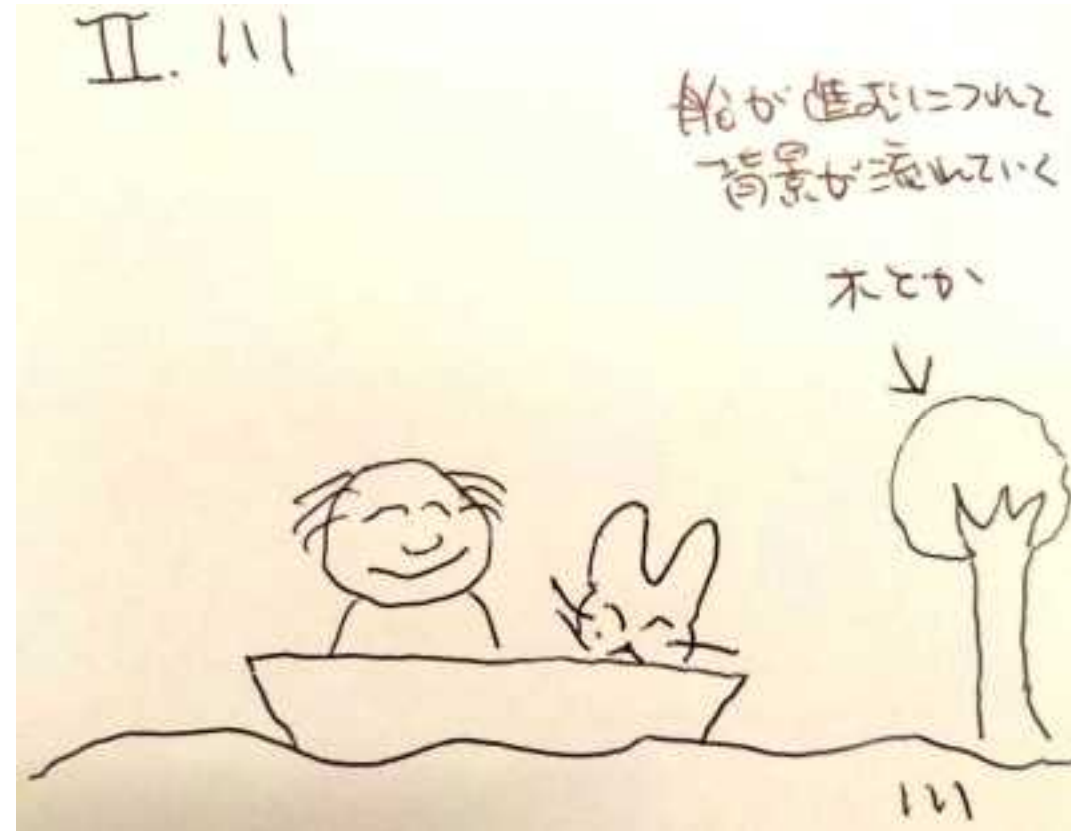 Ⅱ. 川
船が進むにつれて
背景が流れていく
木とか
川